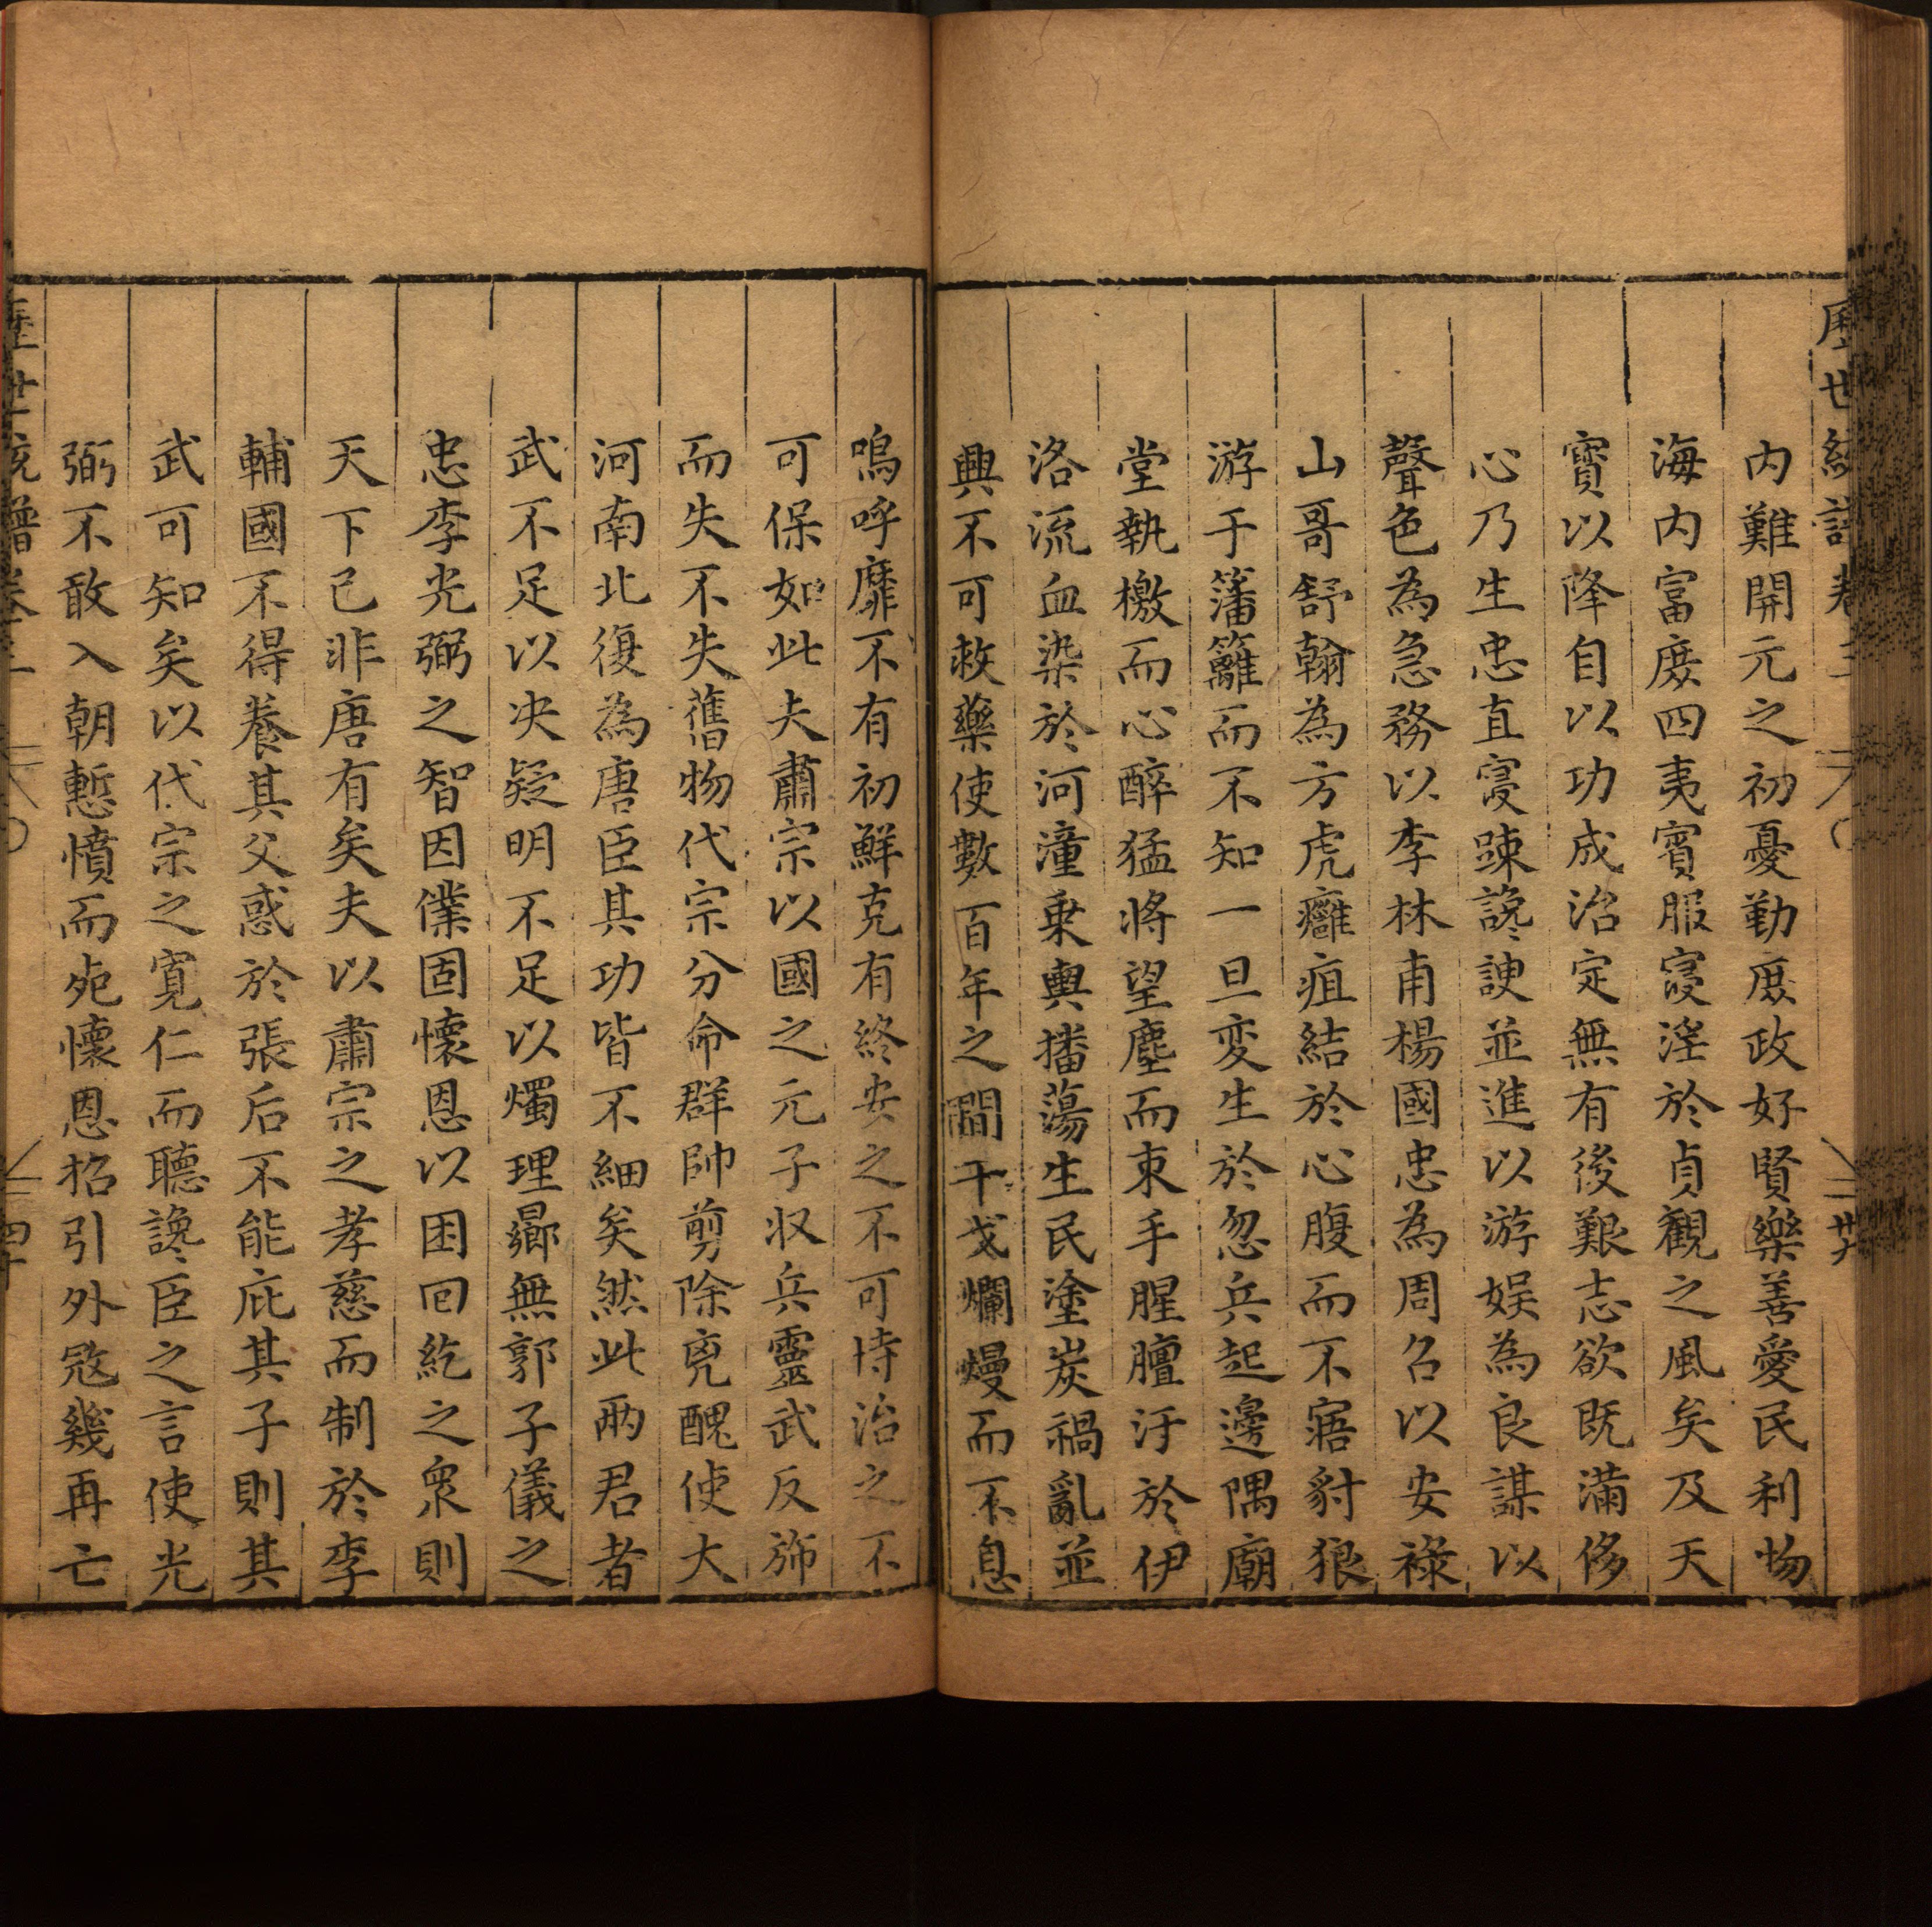 内難開元之初憂勤庶政好賢樂善愛民利物
海内富庶四夷賓服寖淫於貞觀之風矣及天
寳以降自以功成治定無有後艱志欲既滿侈
心乃生忠直寖踈讒諛並進以游娱為良謀以
聲色為急務以李林甫楊國忠為周召以安祿
山哥舒翰為方虎癰疽結於心腹而不寤豺狼
游于籓籬而不知一旦変生於忽兵起邊隅廟
堂執檄而心醉猛將望塵而束手腥膻汙於伊
洛流血染於河潼乗輿播蕩生民塗炭禍亂並
興不可救藥使數百年之間干戈爛熳而不息
嗚呼靡不有初鮮克有終安之不可恃治之不
可保如此夫肅宗以國之元子収兵靈武反斾
而失不失舊物代宗分命群帥剪除兇醜使大
河南北復為唐臣其功皆不細矣然此兩君者
武不足以决疑明不足以燭理曏無郭子儀之
忠李光弼之智因僕固懷恩以困回紇之衆則
天下已非唐有矣夫以肅宗之孝慈而制於李
輔國不得養其父惑於張后不能庇其子則其
武可知矣以代宗之寛仁而聽讒臣之言使光
弼不敢入朝慙憤而死懷恩招引外冦幾再亡